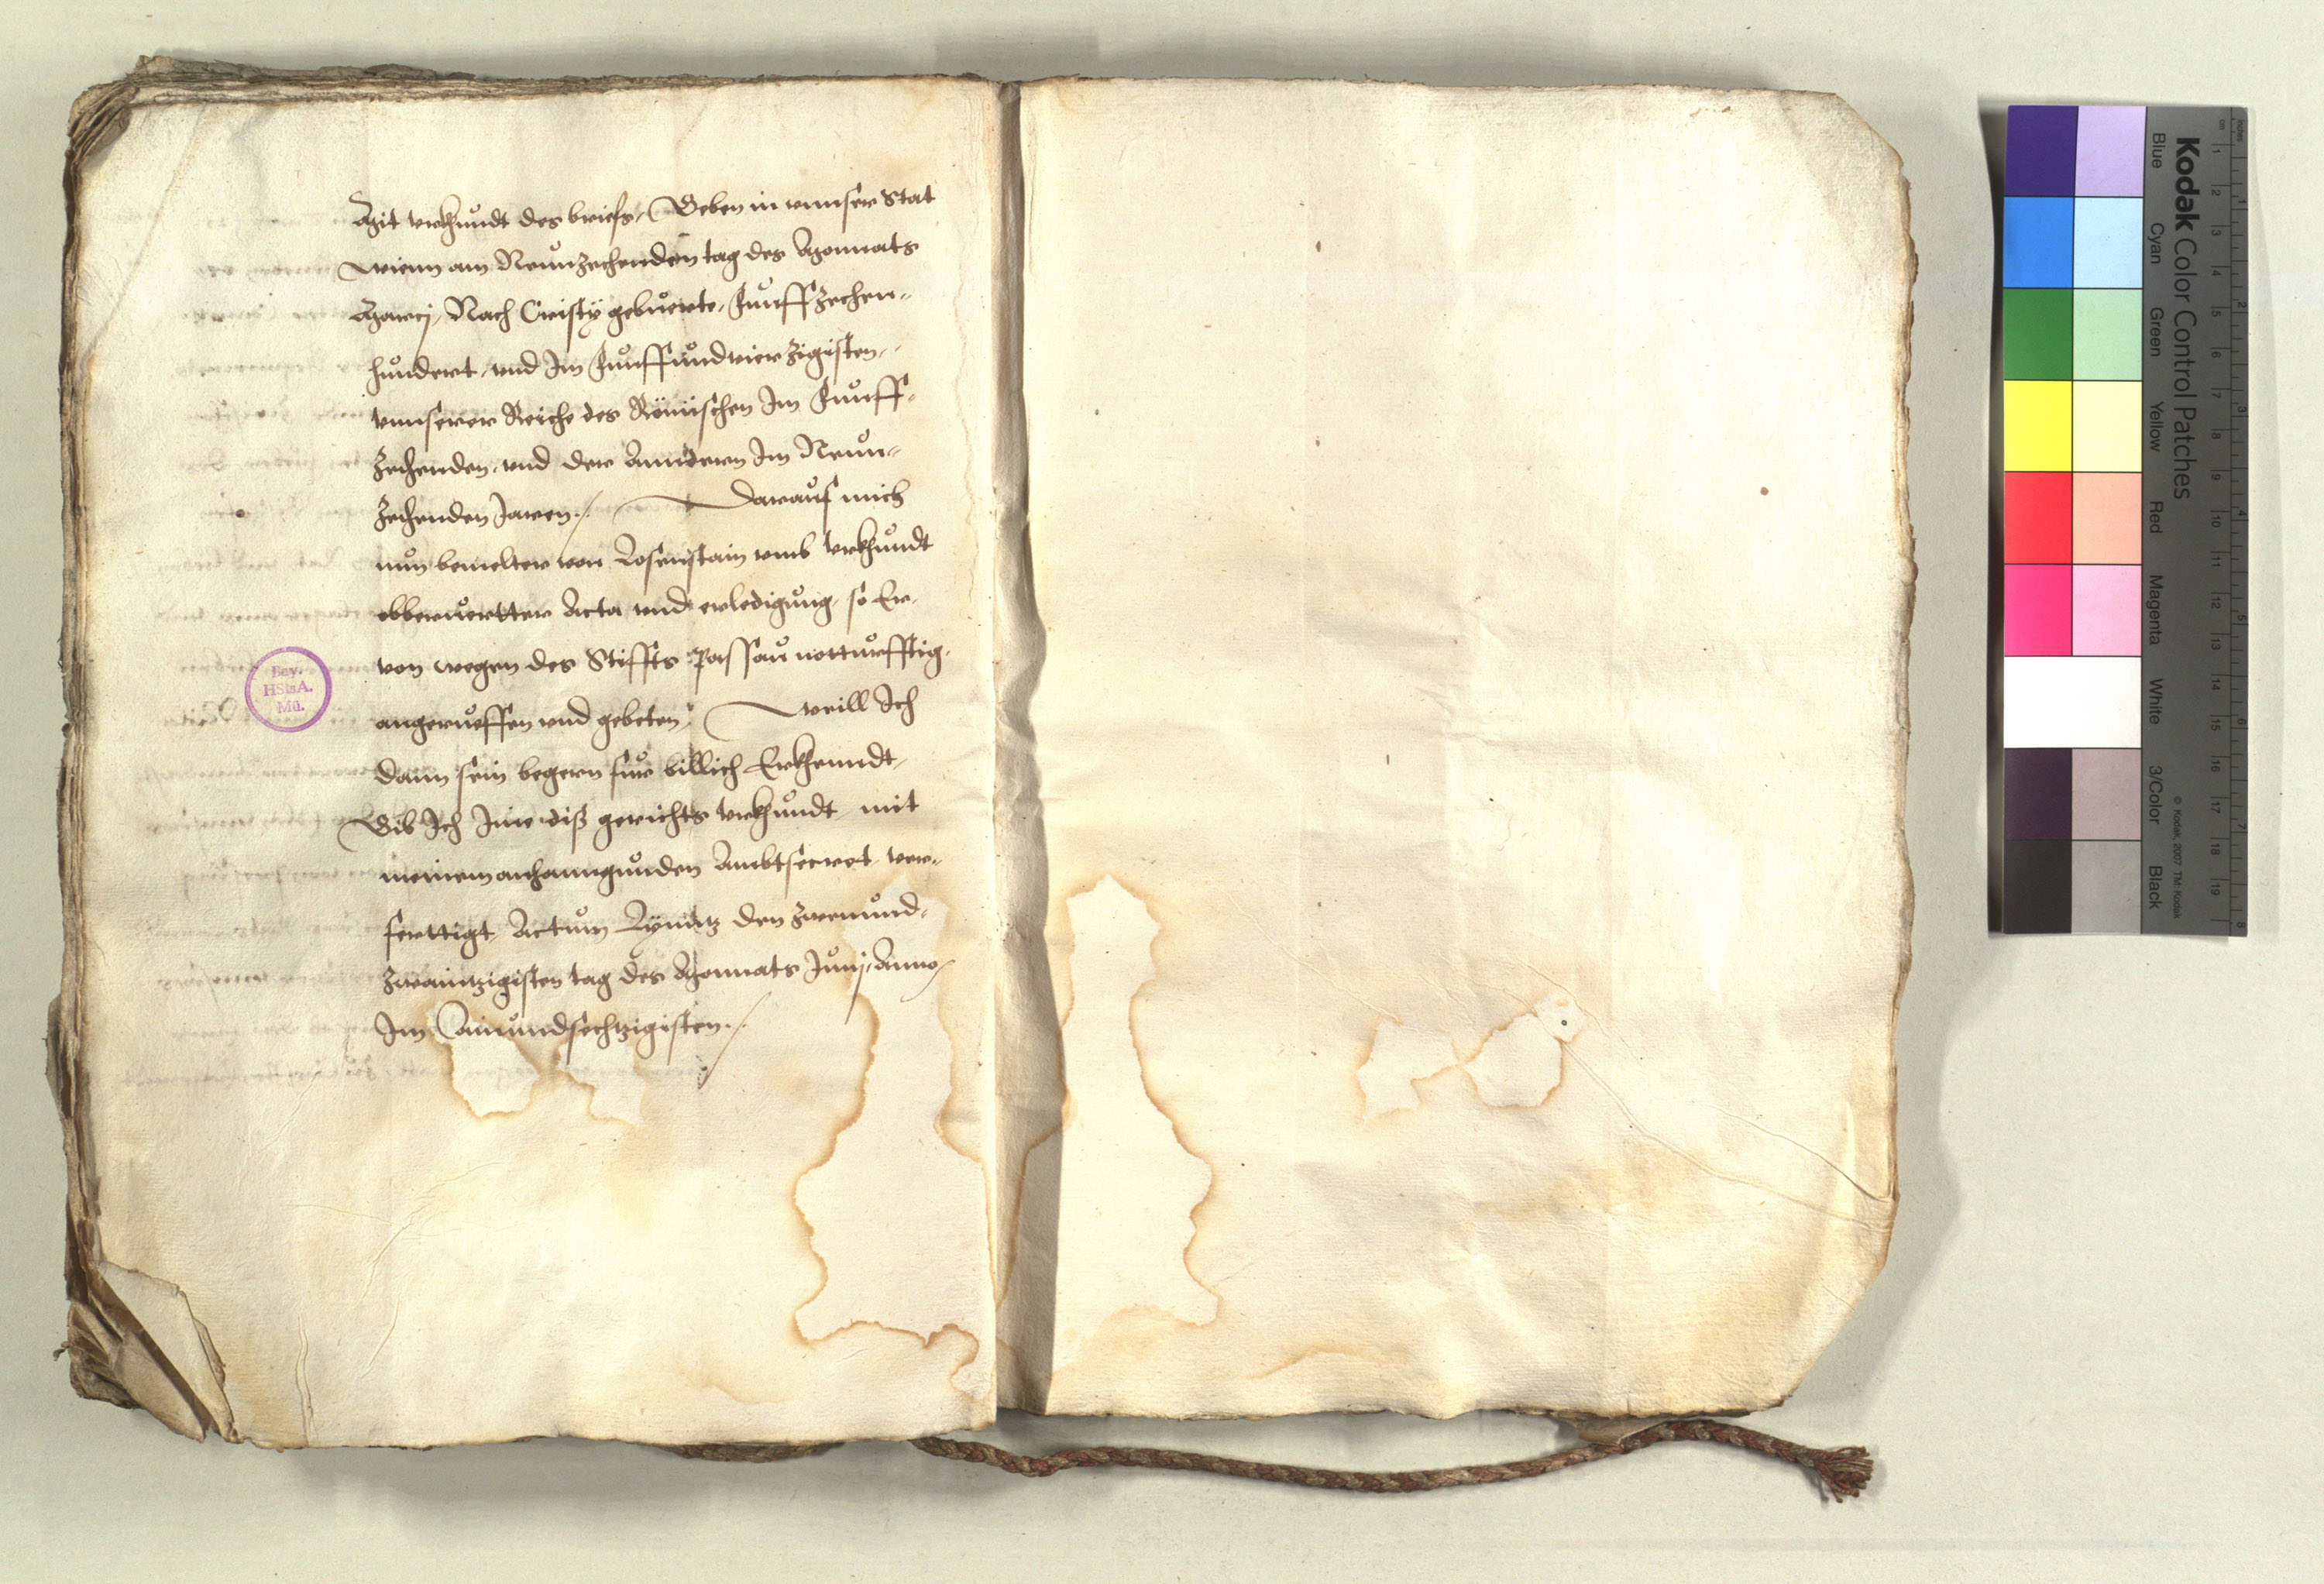 Mit urkhundt des briefs, Geben in unnser Stat
Wienn am Neunzechenden tag des Monnats
Marcy, Nach Cristÿ gebuerte, Funffzechen-
hundert, und Im Funffundvierzigisten,
unnserer Reiche des Römischen Im Funff-
zechenden, und der Anndern Im Neun-
zechenden Jaren ./. Darauf mich
nun bemelter von Losenstain umb Urkhundt
obberuertter Acta und erledigung, so Er,
von wegen des Stiffts Passau notturfftig,
angerueffen und gebeten, Weill Ich
dann sein begern fur billich Erkhenndt,
Gib Ich Ime diß gerichts Urkhundt, mit
meinem anhanngunden Ambtsecret, ver-
ferttigt, Actum Lÿnntz den zwenund-
zwaintzigisten tag des Monnats Junÿ, Anno
Im Ainundsechtzigisten ./.
Bay.
HStsA.
Mü.
Kodak Color Control Patches
Blue Cyan Green Yellow Red Magenta White 3/Color Black
© Kodak 2007 TM Kodak
inches 1 2 3 4 5 6 7 8
cm 1 2 3 4 5 6 7 8 9 10 11 12 13 14 15 16 17 18 19